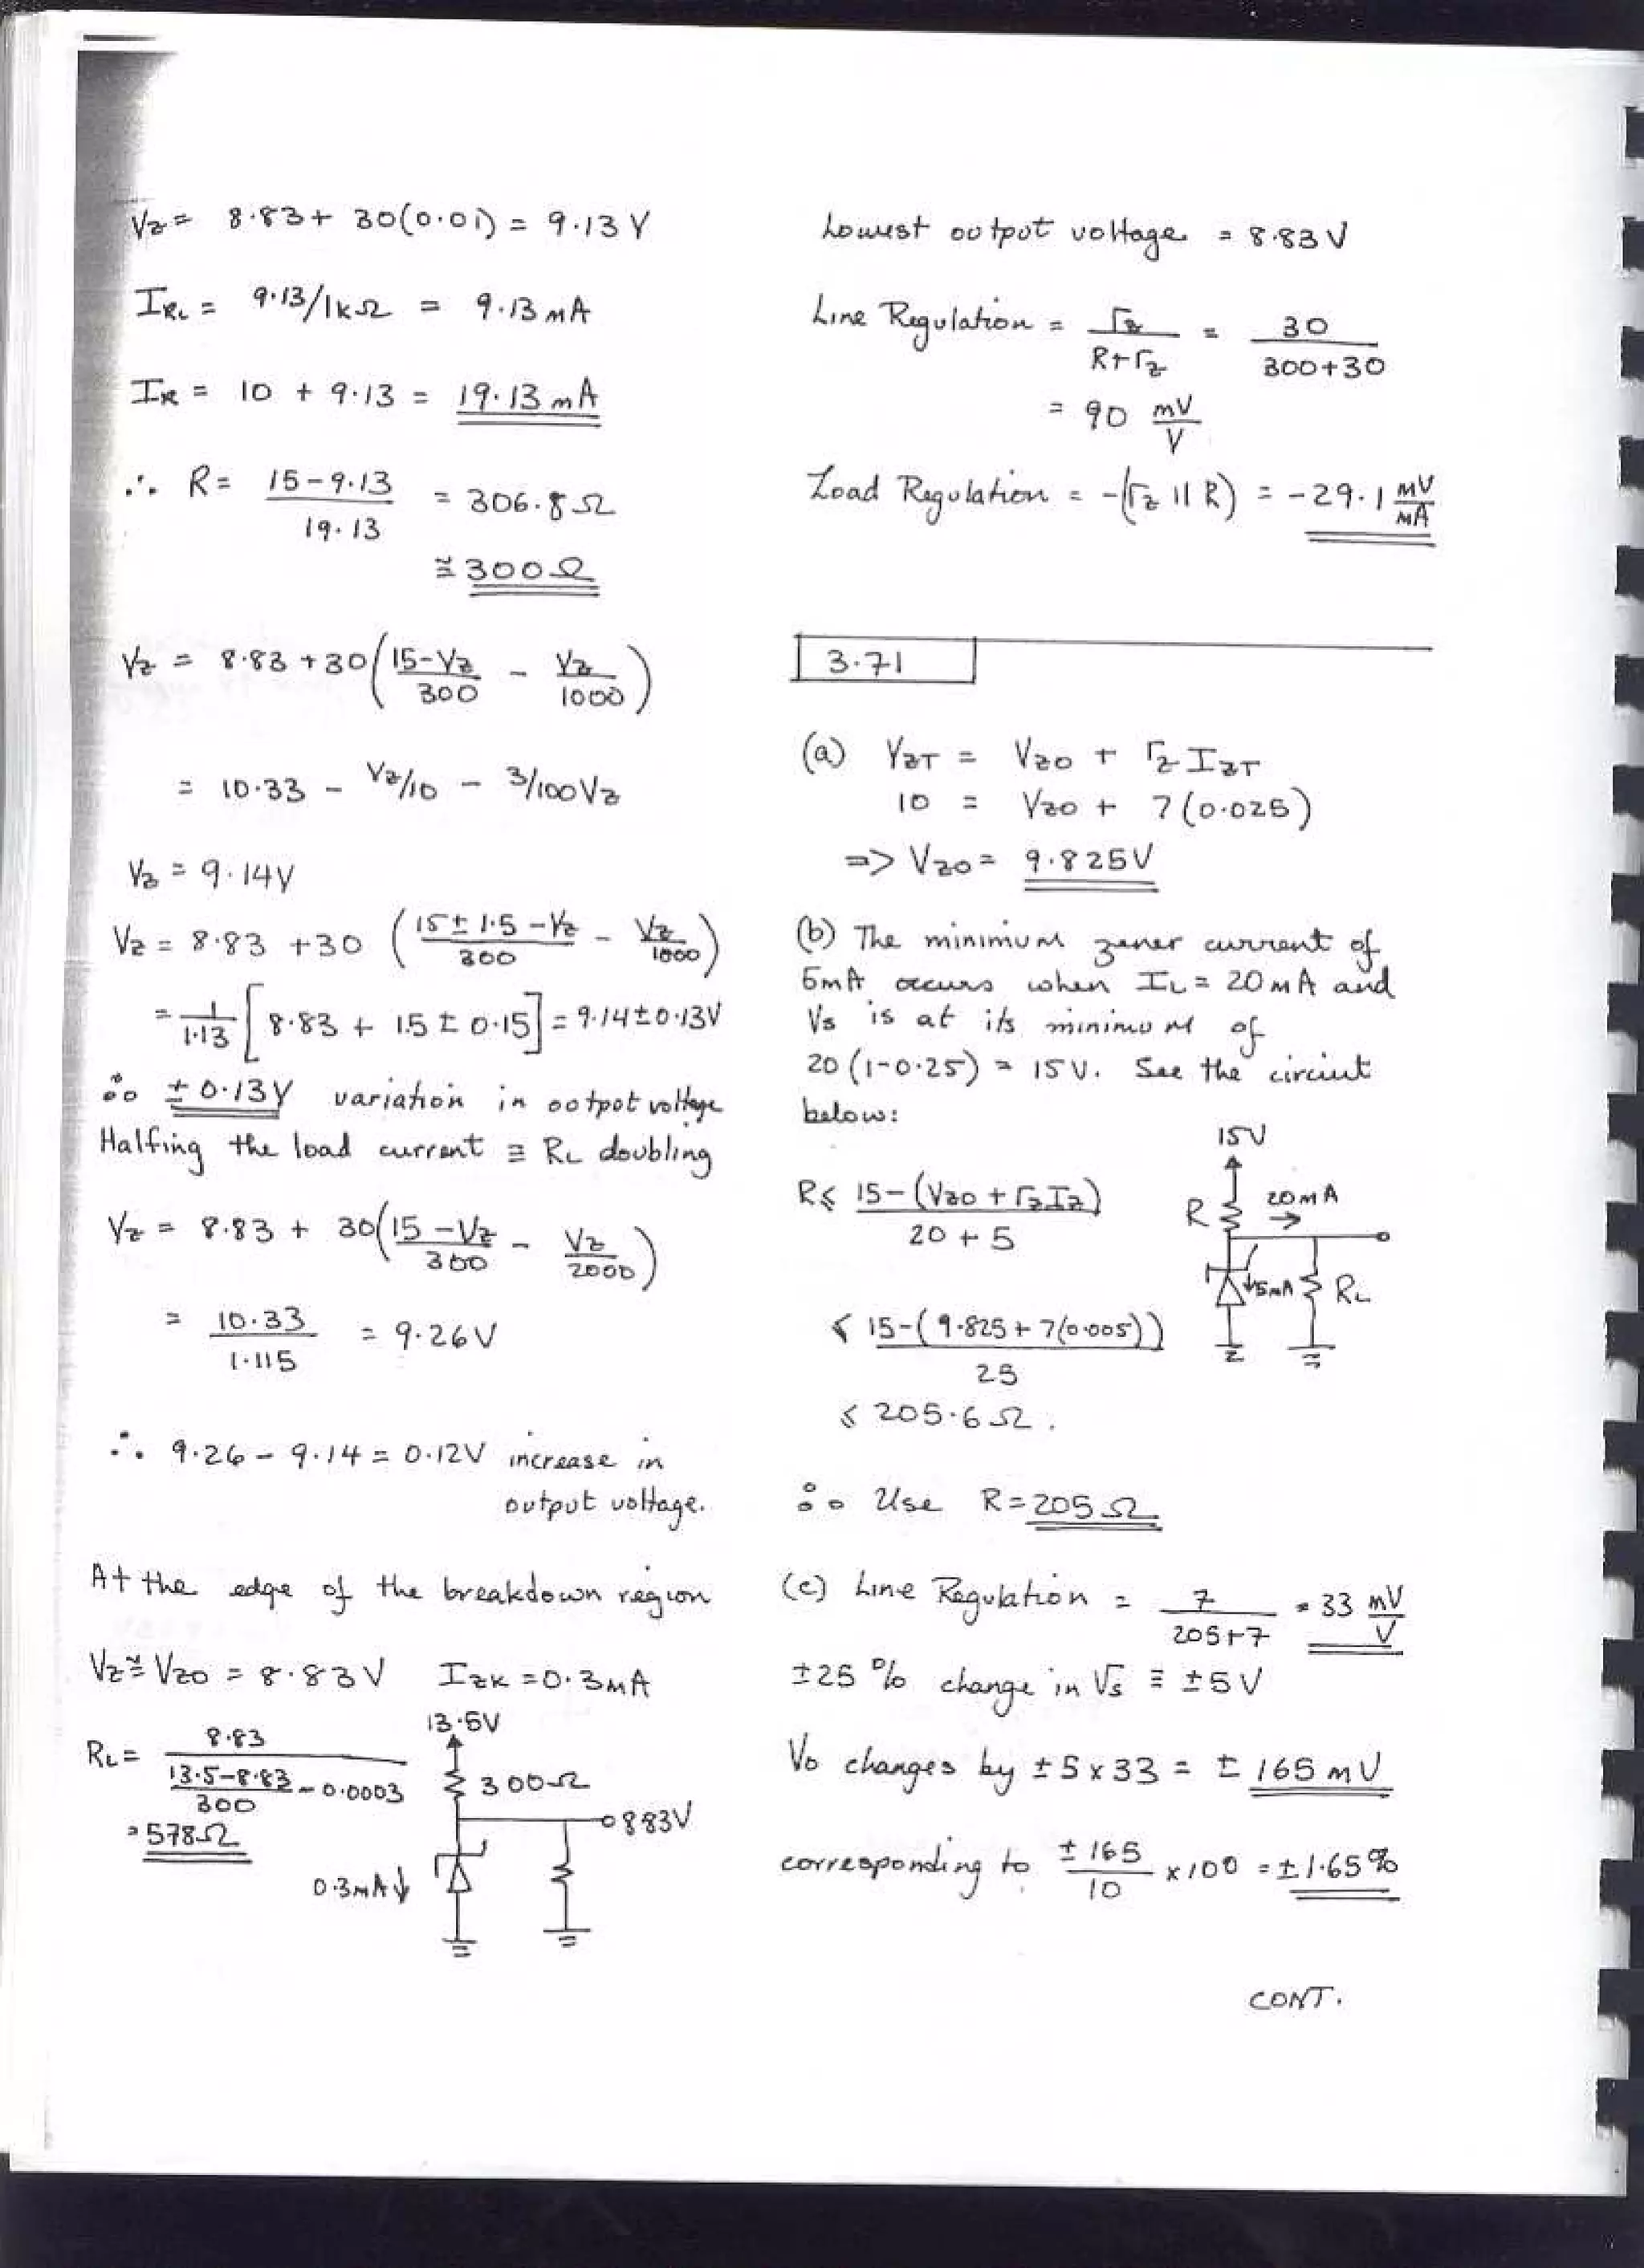 Vz = 8.83 + 30(0.01) = 9.13 V
IRL = 9.13/1kΩ = 9.13 mA
IR = 10 + 9.13 = 19.13 mA
∴ R = (15-9.13)/19.13 = 306.8 Ω
≅ 300 Ω
Vz = 8.83 + 30((15-Vz)/300 - Vz/1000)
= 10.33 - Vz/10 - 3/100 Vz
Vz = 9.14V
Vz = 8.83 + 30 ((15 ± 1.5 - Vz)/300 - Vz/1000)
= 1/1.13 [8.83 + 1.5 ± 0.15] = 9.14 ± 0.13V
∴ ± 0.13V variation in ootpot voltage
Halfing the load current ≡ RL doubling
Vz = 8.83 + 30((15 - Vz)/300 - Vz/2000)
= 10.33/1.115 = 9.26V
∴ 9.26 - 9.14 = 0.12V increase in
output voltage.
At the edge of the breakdown region
Vz ≅ Vzo = 8.83V IzK = 0.3mA
RL = 8.83/((13.5-8.83)/300 - 0.0003)
= 578Ω
13.5V
300Ω
8.83V
0.3mA↓
Lowest output voltage = 8.83V
Line Regulation = rz/(R+rz) = 30/(300+30)
= 90 mV/V
Load Regulation = -(rz || R) = -29.1 mV/mA
3.71
(a) VzT = Vzo + rz IzT
10 = Vzo + 7(0.025)
=> Vzo = 9.825V
(b) The minimum zener current of
5mA occurs when IL = 20mA and
Vs is at its minimum of
20(1-0.25) = 15V. See the circuit
below:
R ≤ (15-(Vzo + rz Iz))/(20 + 5)
≤ (15-(9.825 + 7(0.005)))/25
≤ 205.6Ω.
15V
R
20mA
→
↓5mA
RL
∴ Use R = 205 Ω
(c) Line Regulation = 7/(205+7) = 33 mV/V
±25 % change in Vs ≡ ±5V
Vo changes by ±5 x 33 = ± 165 mV
corresponding to ±165/10 x 100 = ±1.65%
CONT.